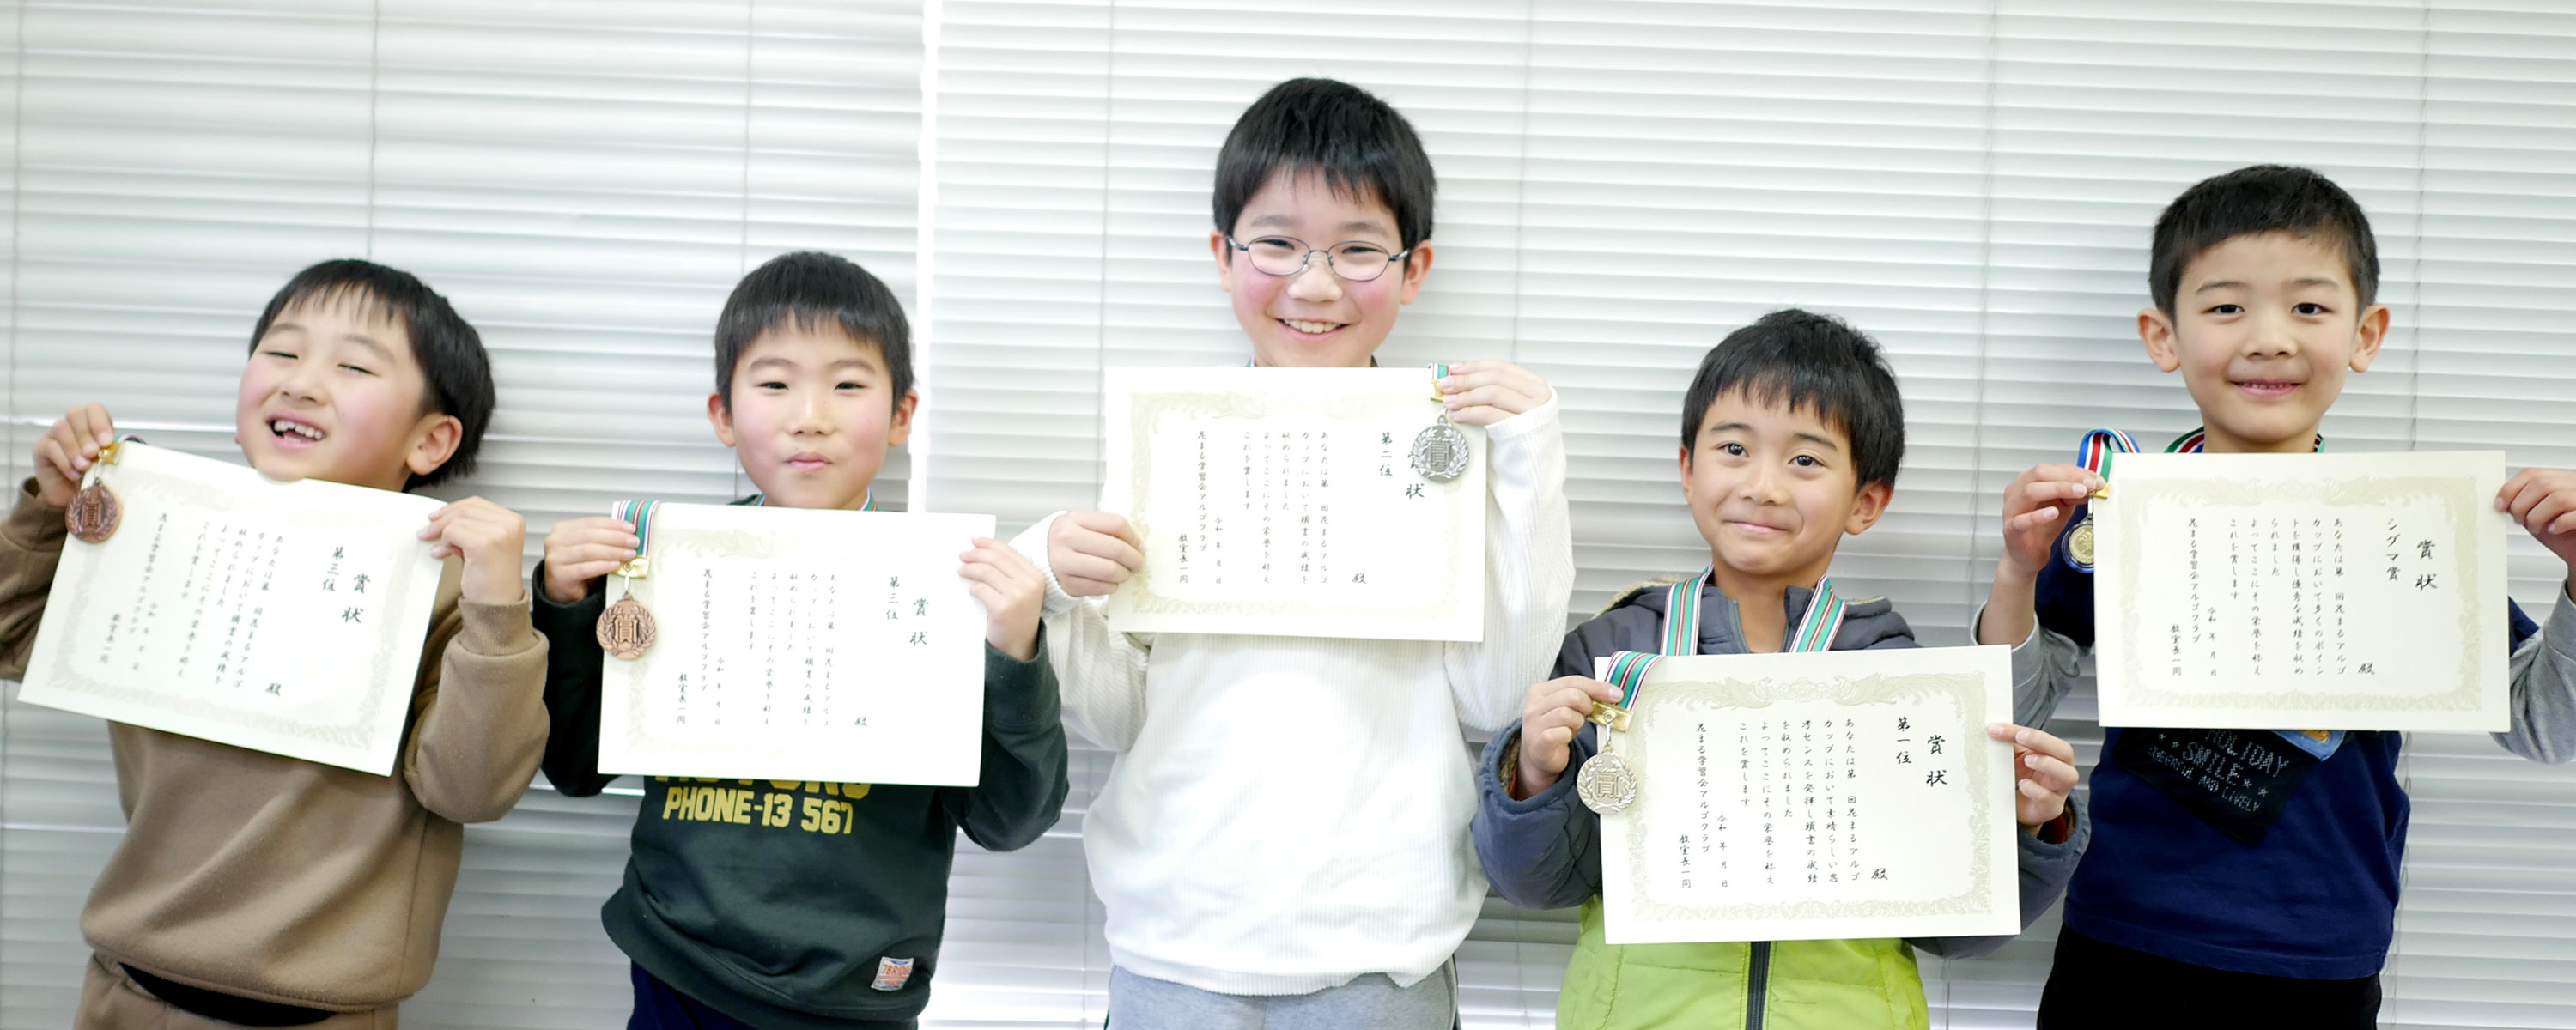 賞状
第三位
殿
あなたは第 回花まるアルゴ
カップにおいて頭書の成績を
収められました
よってここにその栄誉を称え
これを賞します
令和 年 月 日
花まる学習会アルゴクラブ
教室長一同
賞状
第三位
殿
あなたは第 回花まるアルゴ
カップにおいて頭書の成績を
収められました
よってここにその栄誉を称え
これを賞します
令和 年 月 日
花まる学習会アルゴクラブ
教室長一同
賞
PHONE-13 567
賞状
第二位
殿
あなたは第 回花まるアルゴ
カップにおいて頭書の成績を
収められました
よってここにその栄誉を称え
これを賞します
令和 年 月 日
花まる学習会アルゴクラブ
教室長一同
賞
賞状
第一位
殿
あなたは第 回花まるアルゴ
カップにおいて素晴らしい思
考センスを発揮し頭書の成績
を収められました
よってここにその栄誉を称え
これを賞します
令和 年 月 日
花まる学習会アルゴクラブ
教室長一同
賞
賞状
シグマ賞
殿
あなたは第 回花まるアルゴ
カップにおいて多くのポイン
トを獲得し優秀な成績を収め
られました
よってここにその栄誉を称え
これを賞します
令和 年 月 日
花まる学習会アルゴクラブ
教室長一同
HOLIDAY
SMILE
CHEERFUL AND LIVELY